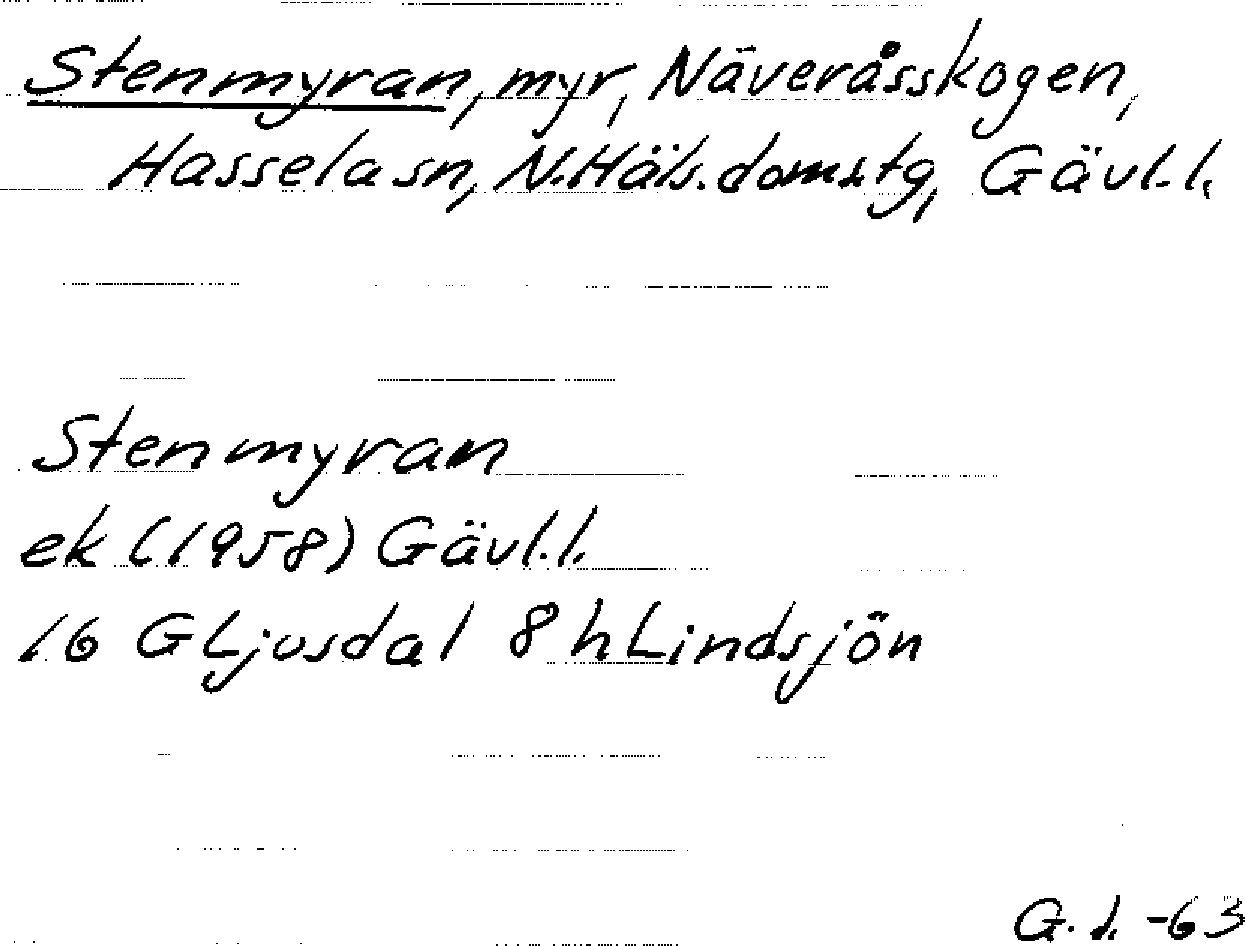 Stenmyran, myr, Näveråsskogen,
Hasselasn, N.Häls.domstg, Gävl.l.
Stenmyran
ek (1958) Gävl.l.
16 G Ljusdal 8 h Lindsjön
G. l. -63